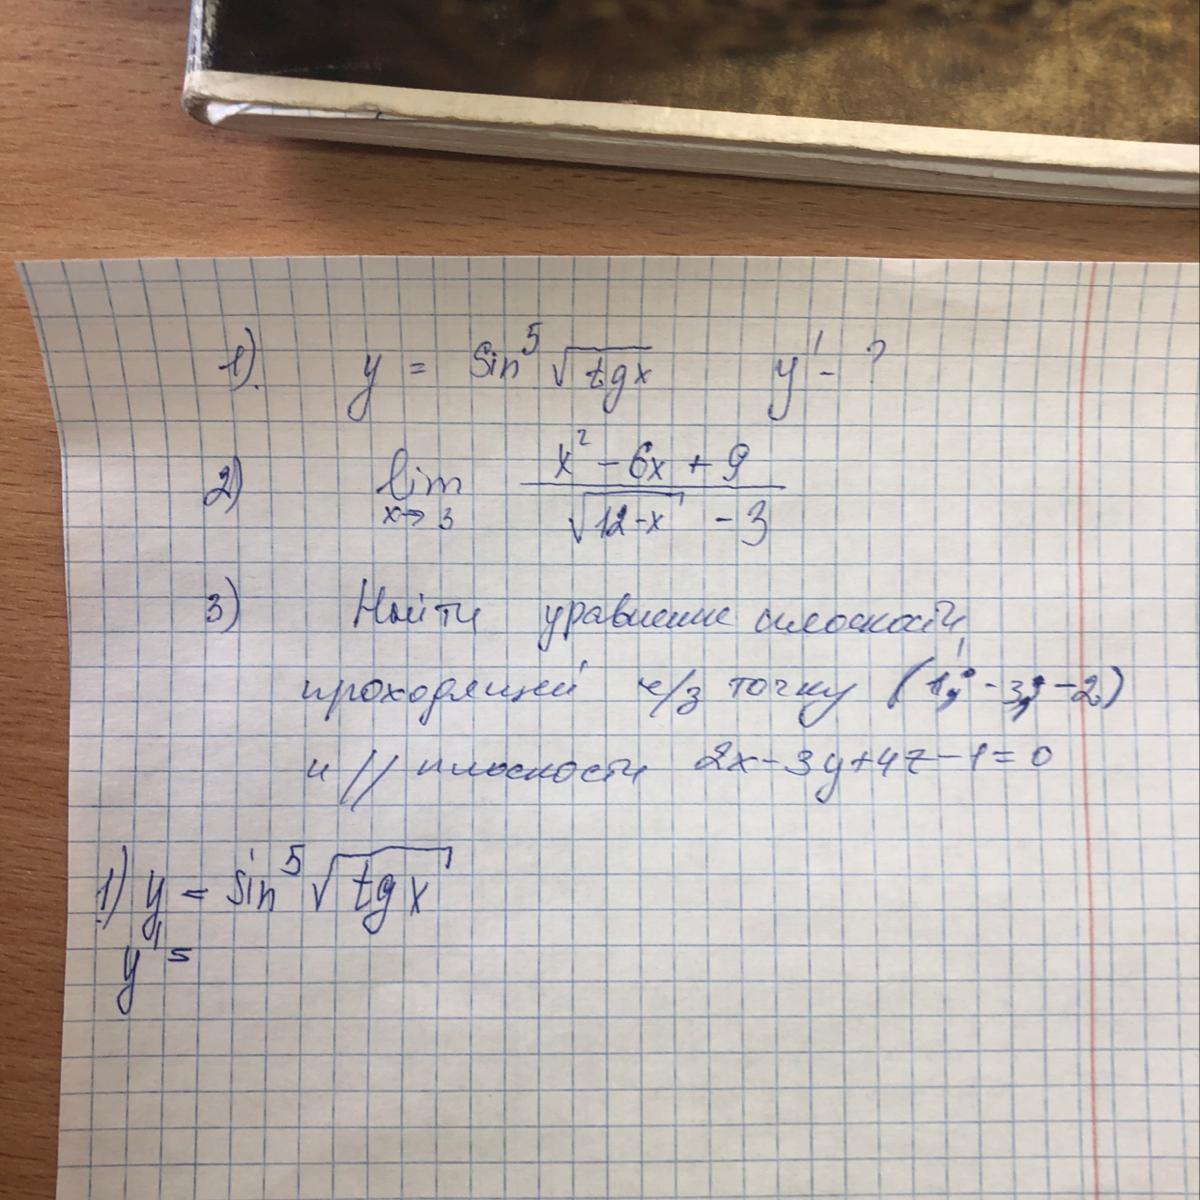 1). y = sin⁵ √tgx y' - ?
2) lim x→3 (x² - 6x + 9) / (√12-x - 3)
3) Найти уравнение плоскости,
проходящей ч/з точку (1; -3; -2)
и // плоскости 2x-3y+4z-1=0
1) y = sin⁵ √tgx
y' =